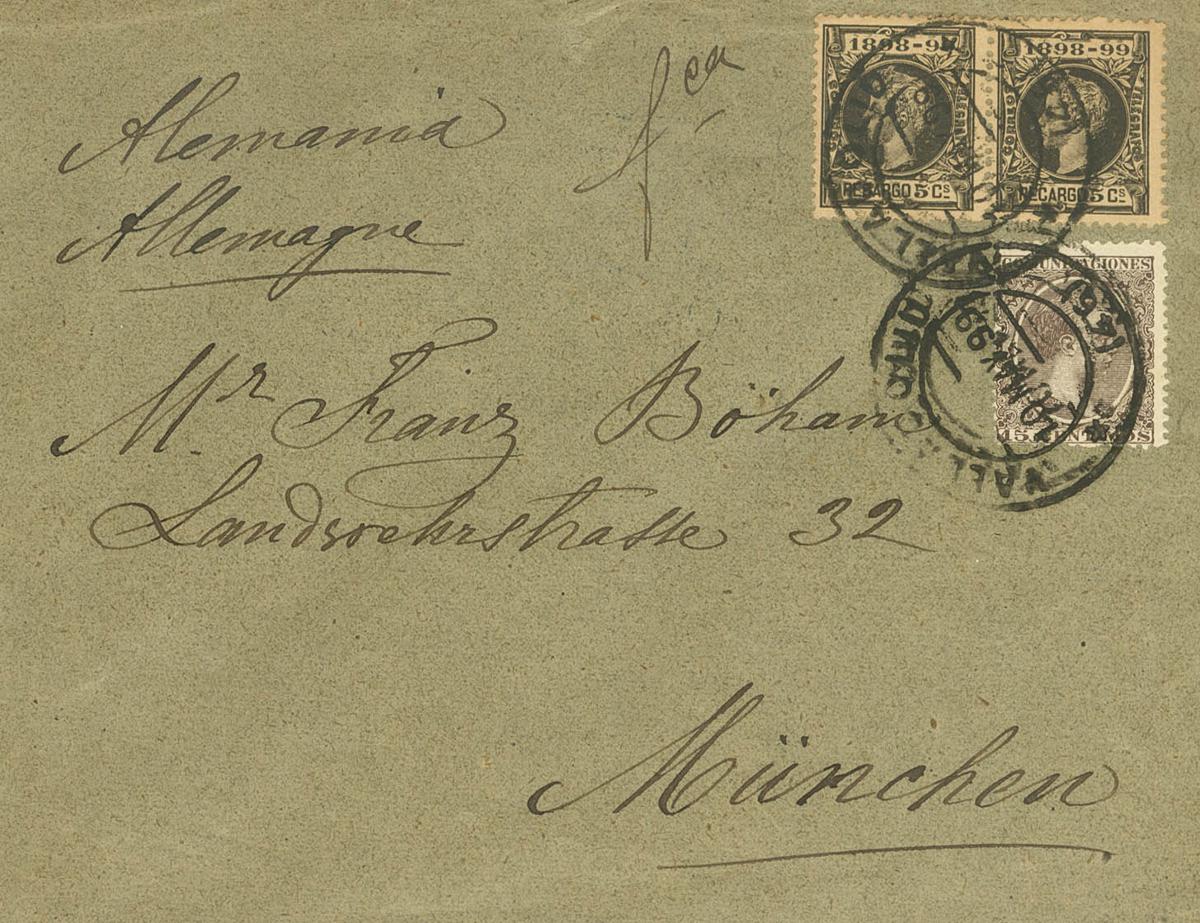 Alemania
fca
Allemagne
Mr Franz Böham
Landwehrstrasse 32
München
1898-99 1898-99
RECARGO 5 Cs RECARGO 5 Cs
COMUNICACIONES
15 CENTIMOS
VALLADOLID
20 MAY 99
VALLADOLID